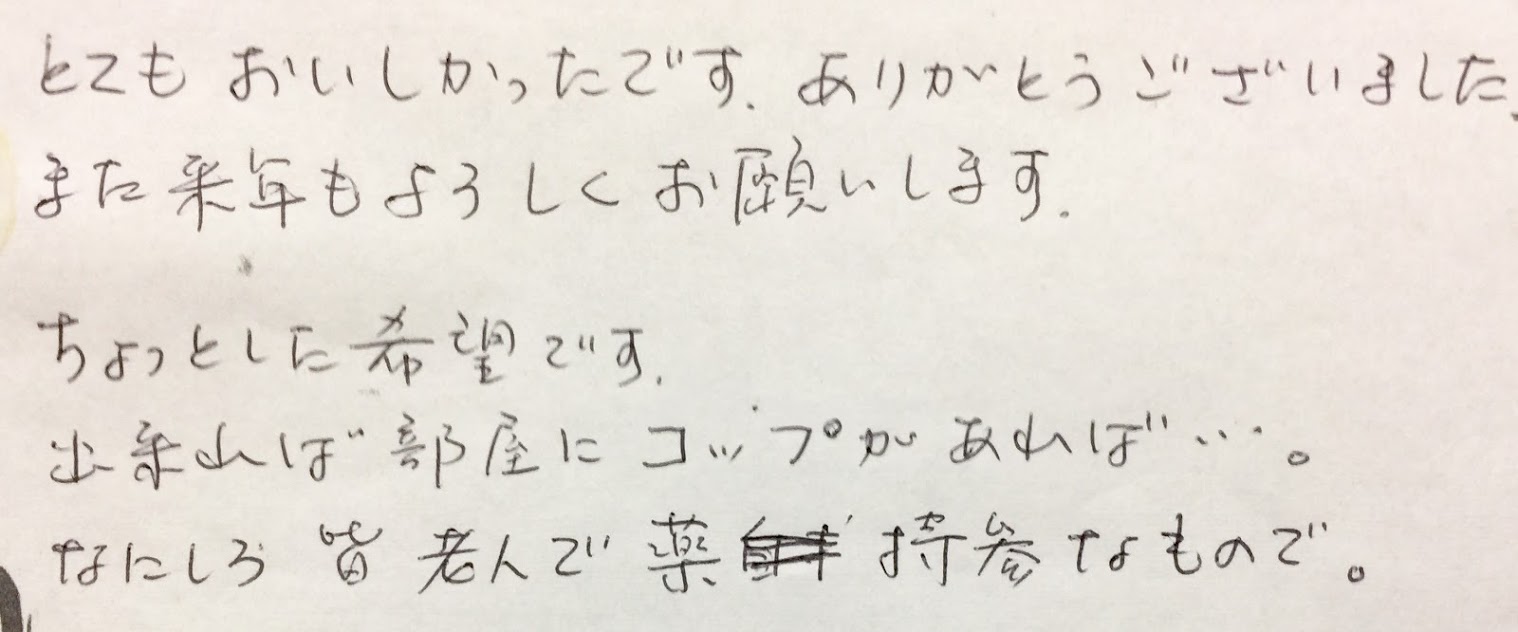 とてもおいしかったです.ありがとうございました.
また来年もよろしくお願いします.
ちょっとした希望です.
出来れば部屋にコップがあれば…。
なにしろ皆老人で薬持参なもので。